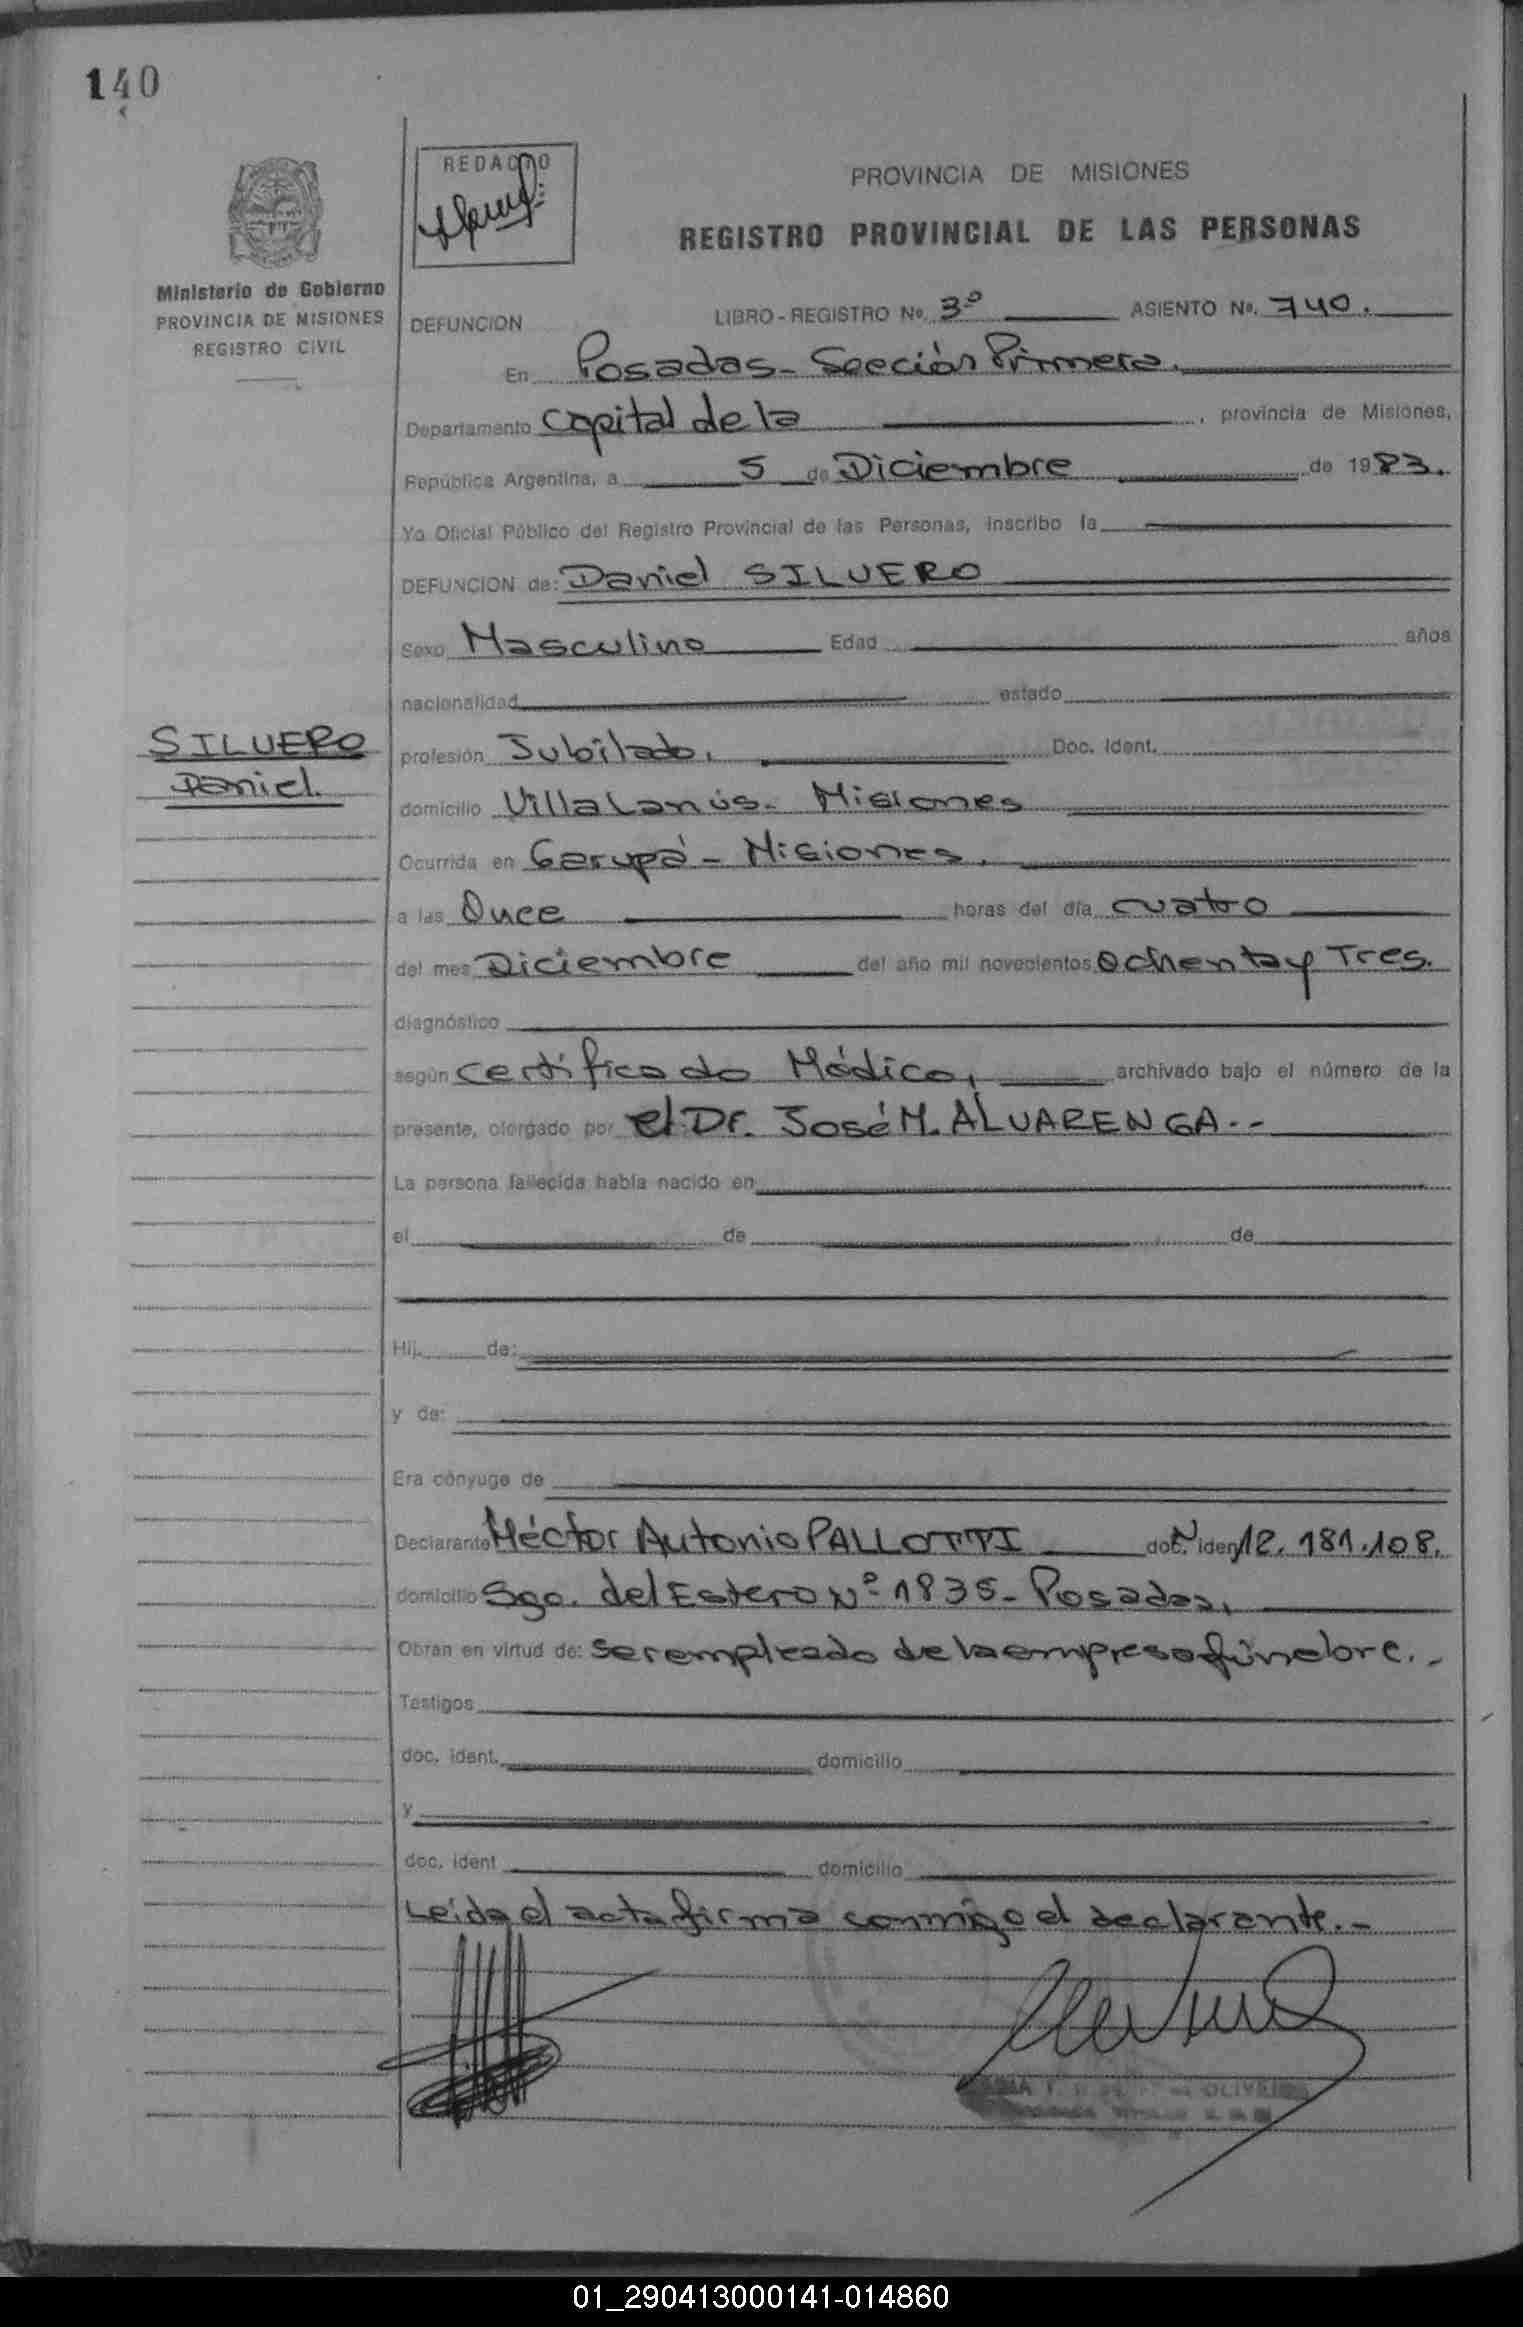 140
REDACTO
PROVINCIA DE MISIONES
REGISTRO PROVINCIAL DE LAS PERSONAS
Ministerio de Gobierno
PROVINCIA DE MISIONES
REGISTRO CIVIL
DEFUNCION LIBRO - REGISTRO Nº. 3º ASIENTO Nº. 740.
En Posadas - Sección Primera.
Departamento Capital de la , provincia de Misiones,
República Argentina, a 5 de Diciembre de 1983.
Yo Oficial Público del Registro Provincial de las Personas, inscribo la
DEFUNCION de: Daniel SILVERO
Sexo Masculino Edad años
nacionalidad estado
SILVERO
Daniel.
profesión Jubilado. Doc. Ident.
domicilio Villa Lanús. Misiones
Ocurrida en Garupá - Misiones.
a las Once horas del día cuatro
del mes Diciembre del año mil novecientos Ochenta y Tres.
diagnóstico
según Certificado Médico, archivado bajo el número de la
presente, otorgado por el Dr. José M. ALVARENGA.-
La persona fallecida había nacido en
el de de
Hij de:
y de:
Era cónyuge de
Declarante Héctor Antonio PALLOTTI doc. iden 12.181.108.
domicilio Sgo. del Estero Nº 1835 - Posadas.
Obran en virtud de: Ser empleado de la empresa fúnebre.-
Testigos
doc. ident. domicilio
y
doc. ident domicilio
Leida el acta firma conmigo el declarante.-
OLIVEIRA
01_290413000141-014860